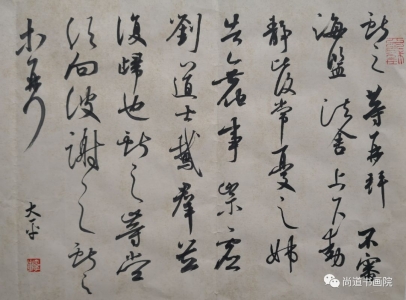 獻之等再拜 不審
海鹽諸舍上下動
靜比復常憂之姊
告無他事崇虛
劉道士鵝群並
復歸也獻之等當
須向彼謝之獻之
大平
尚道书画院